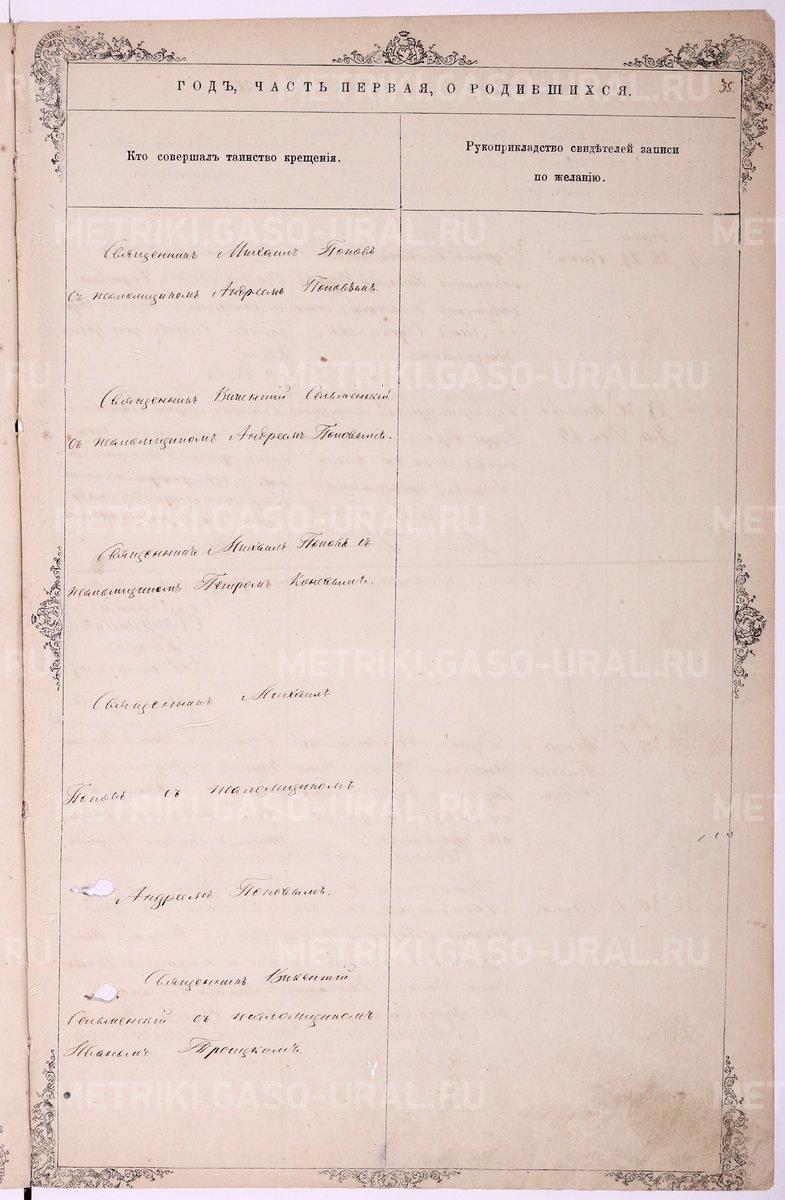 ГОДЪ, ЧАСТЬ ПЕРВАЯ, О РОДИВШИХСЯ.
35.
Кто совершалъ таинство крещенія.
Рукоприкладство свидѣтелей записи
по желанію.
Священникъ Михаилъ Поповъ
съ псаломщикомъ Андреемъ Поповымъ.
Священникъ Викентій Сельменскій
съ псаломщикомъ Андреемъ Поповымъ.
Священникъ Михаилъ Поповъ съ
псаломщикомъ Петромъ
Священникъ Михаилъ
Поповъ съ псаломщикомъ
Андреемъ Поповымъ.
Священникъ Викентій
Сельменскій съ псаломщикомъ
Иваномъ Троицкимъ.
METRIKI.GASO-URAL.RU